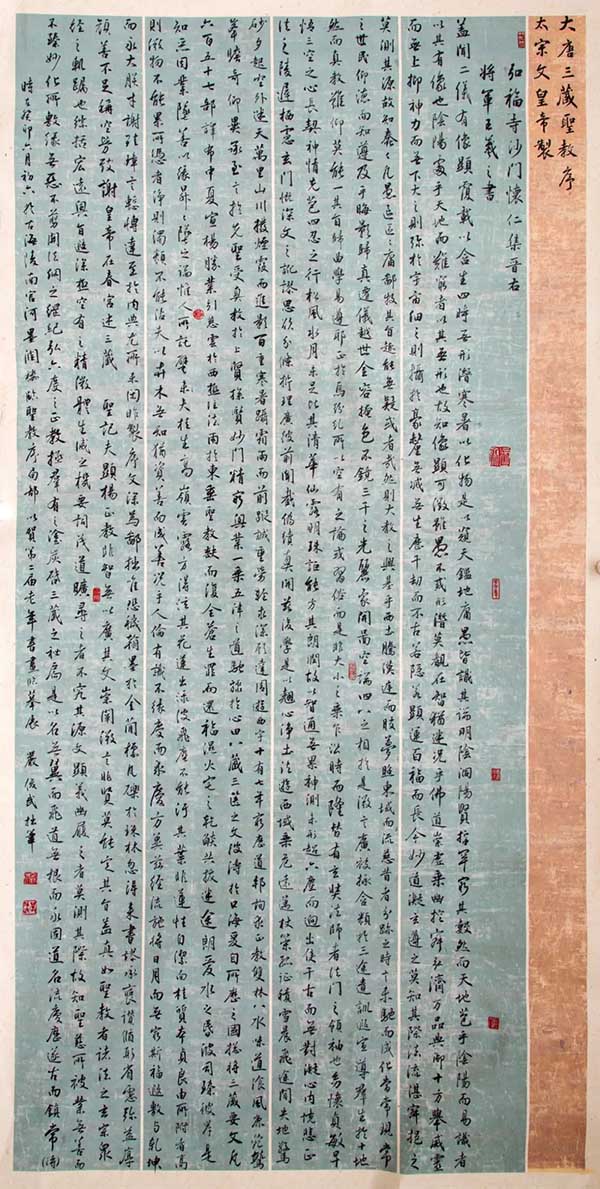 大唐三藏聖教序
太宗文皇帝製
弘福寺沙門懷仁集晉右
將軍王羲之書
蓋聞二儀有像顯覆載以含生四時無形潛寒暑以化物是以窺天鑑地庸愚皆識其端明陰洞陽賢哲罕窮其數然而天地苞乎陰陽而易識者
以其有像也陰陽處乎天地而難窮者以其無形也故知像顯可徵雖愚不惑形潛莫覩在智猶迷況乎佛道崇虛乘幽控寂弘濟萬品典御十方舉威靈
而無上抑神力而無下大之則彌於宇宙細之則攝於毫釐無滅無生歷千劫而不古若隱若顯運百福而長今妙道凝玄遵之莫知其際法流湛寂挹之
莫測其源故知蠢蠢凡愚區區庸鄙投其旨趣能無疑或者哉然則大教之興基乎西土騰漢庭而皎夢照東域而流慈昔者分跡之時言未馳而成化當常現常
之世民仰德而知遵及乎晦影歸真遷儀越世金容掩色不鏡三千之光麗象開圖空端四八之相於是微言廣被拯含類於三途遺訓遐宣導群生於十地
然而真教難仰莫能一其旨歸曲學易遵耶正於焉紛糺所以空有之論或習俗而是非大小之乘乍沿時而隆替有玄奘法師者法門之領袖也幼懷貞敏早
悟三空之心長契神情先苞四忍之行松風水月未足比其清華仙露明珠詎能方其朗潤故以智通無累神測未形超六塵而迥出隻千古而無對凝心內境悲正
法之陵遲栖慮玄門慨深文之訛謬思欲分條析理廣彼前聞截偽續真開茲後學是以翹心淨土法遊西域乘危遠邁杖策孤征積雪晨飛途間失地驚
砂夕起空外迷天萬里山川撥煙霞而進影百重寒暑躡霜雨而前蹤誠重勞輕求深願達周遊西宇十有七年窮歷道邦詢求正教雙林八水味道飡風鹿菀鷲
峯瞻奇仰異承至言於先聖受真教於上賢探賾妙門精窮奧業一乘五律之道馳驟於心田八藏三篋之文波濤於口海爰自所歷之國總將三藏要文凡
六百五十七部譯布中夏宣揚勝業引慈雲於西極注法雨於東垂聖教缺而復全蒼生罪而還福濕火宅之乾燄共拔迷途朗愛水之昏波同臻彼岸是
知惡因業墜善以緣昇昇墜之端惟人所託譬夫桂生高嶺雲露方得泫其花蓮出淥波飛塵不能汙其葉非蓮性自潔而桂質本貞良由所附者高
則微物不能累所憑者淨則濁類不能沾夫以卉木無知猶資善而成善況乎人倫有識不緣慶而求慶方冀茲經流施將日月而無窮斯福遐敷與乾坤
而永大朕才謝珪璋言慙博達至於內典尤所未閑昨製序文深為鄙拙唯恐穢翰墨於金簡標瓦礫於珠林忽得來書謬承褒讚循躬省慮彌益厚
顏善不足稱空勞致謝 皇帝在春宮述三藏 聖記夫顯揚正教非智無以廣其文崇闡微言非賢莫能定其旨蓋真如聖教者諸法之玄宗眾
經之軌躅也綜括宏遠奧旨遐深極空有之精微體生滅之機要詞茂道曠尋之者不究其源文顯義幽履之者莫測其際故知聖慈所被業無善而
不臻妙化所敷緣無惡不剪開法網之綱紀弘六度之正教拯群有之塗炭啟三藏之祕扃是以名無翼而飛道無根而永固道名流慶歷遂古而鎮常
時在癸卯六月初六於古海陵南官河墨潤臨聖教序局部以賀第二屆老年書畫臨摹展 嚴俊武拙筆